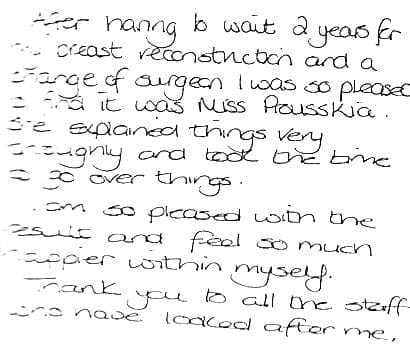 After having to wait 2 years for
my breast reconstruction and a
change of surgeon I was so pleased
to find it was Miss Prousskia.
She explained things very
thoroughly and took the time
to go over things.
I am so pleased with the
result and feel so much
happier within myself.
Thank you to all the staff
who have looked after me,